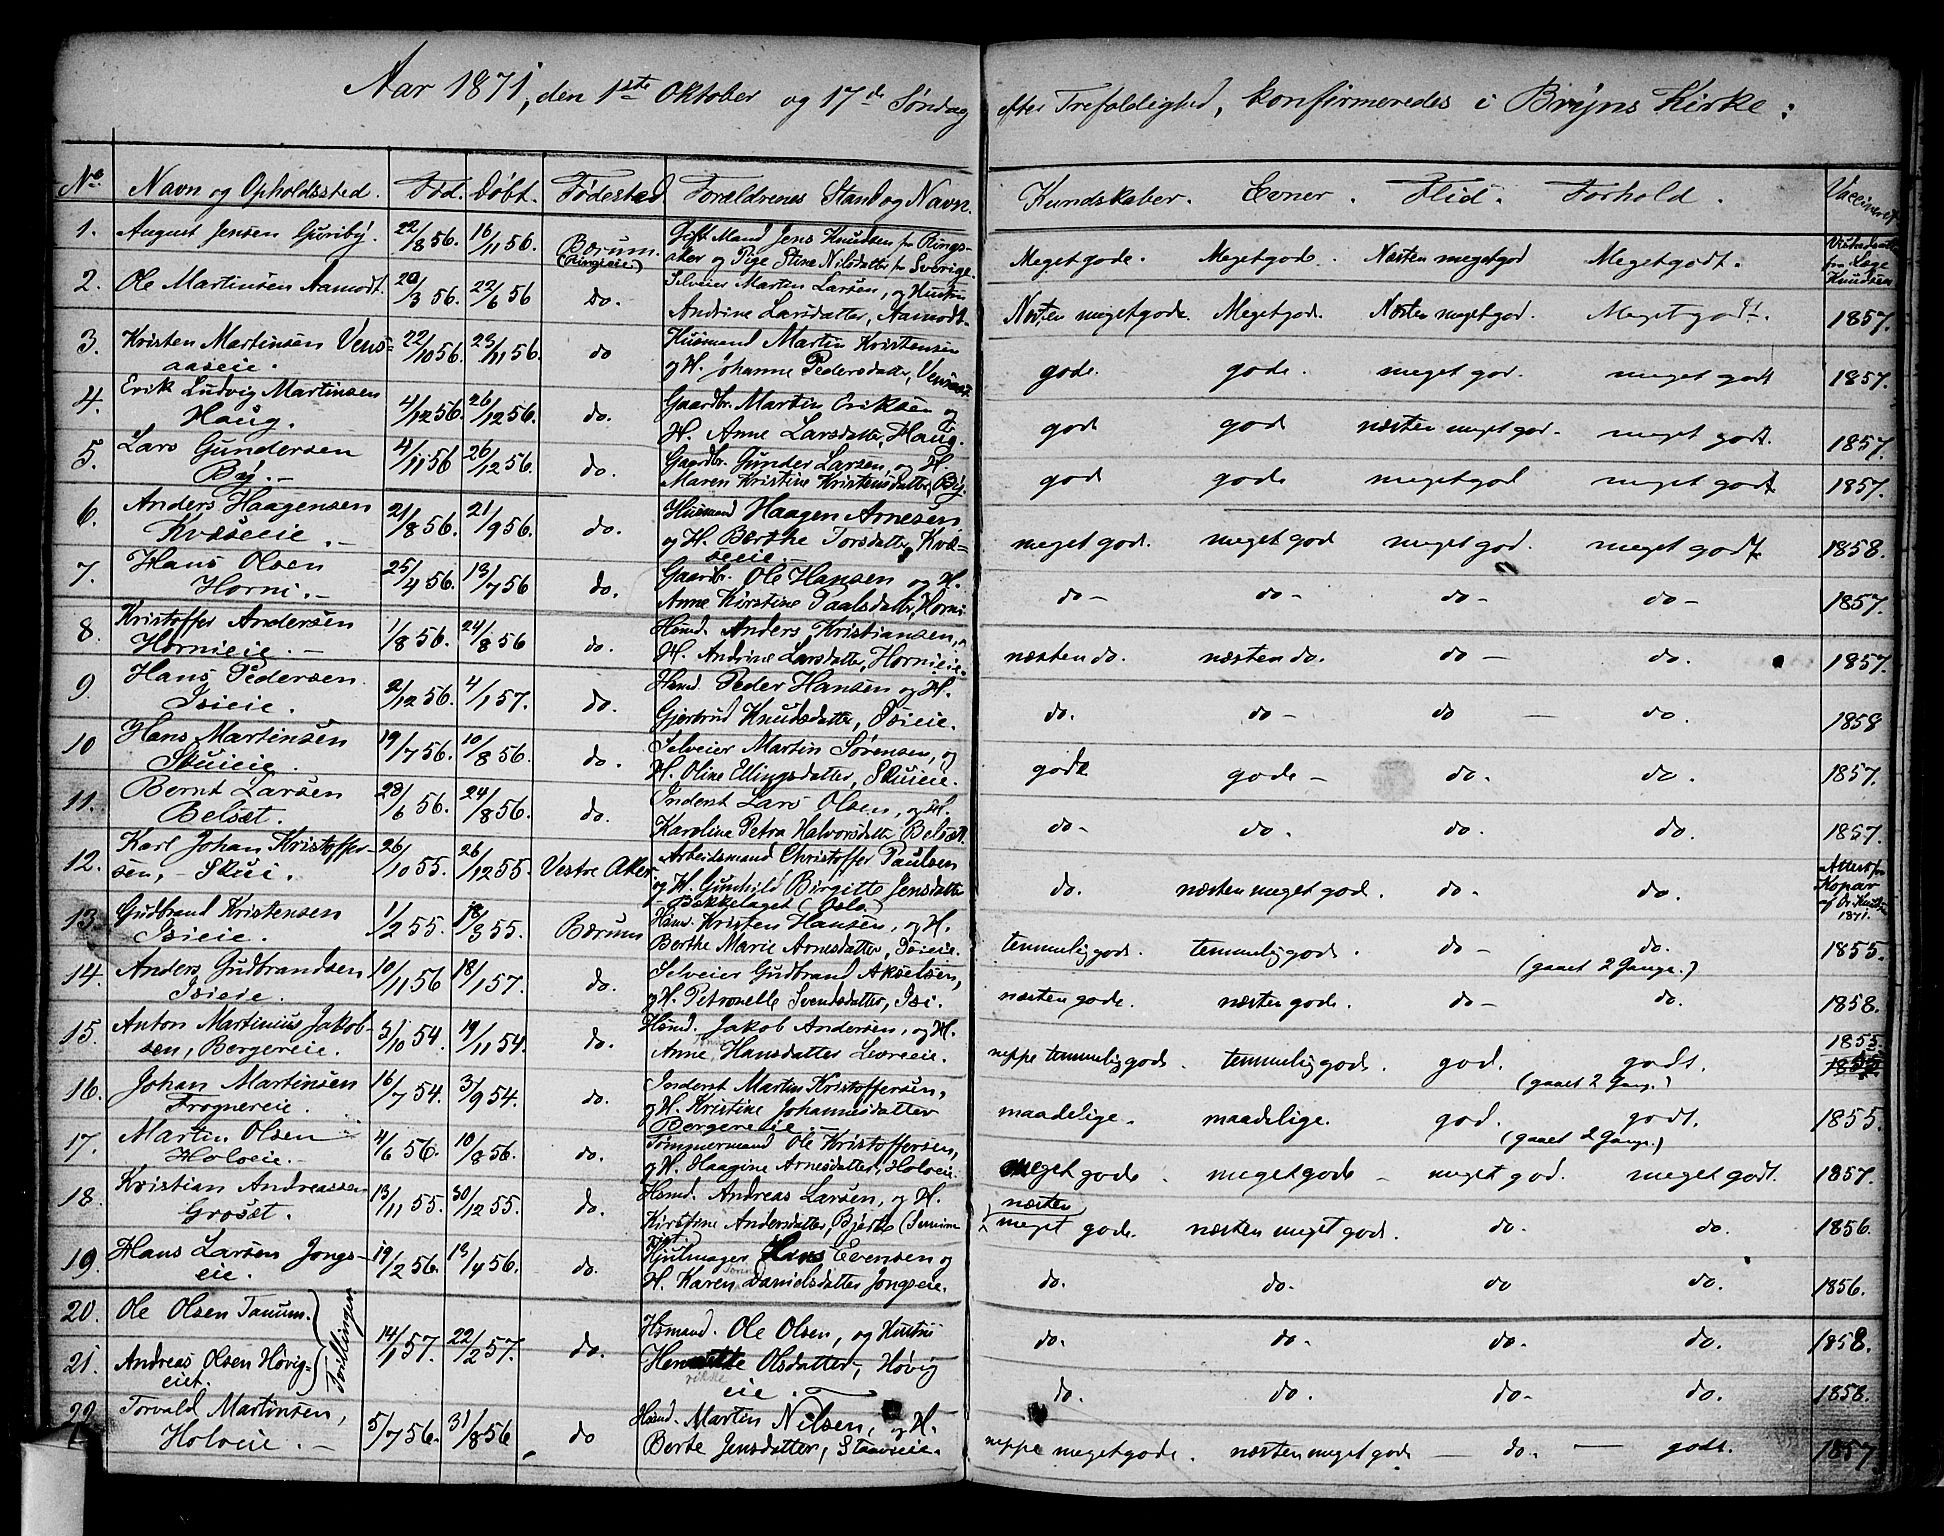 Aar 1871, den 1ste Oktober og 17de Søndag efter Trefoldighed, konfirmeredes i Bryns Kirke:
No Navn og Opholdssted. Fød. Døbt. Fødested Forældrenes Stand og Navn. Kundskaber. Evner. Flid. Forhold. Vaccineret
1. August Jensen Guriby. 22/8 56. 16/11 56. Bærum. Gift Mand Jens Knudsen fr Rings-
aker og Pige Stine Nilsdatter fr Sverige. Megetgode. Megetgode. Næsten megetgod Megetgodt.
fra Læge Knudsen
2. Ole Martinsen Aamodt. 20/3 56. 22/6 56 do. Selveier Martin Larsen, og Hustru
Andrine Larsdatter, Aamodt. Næsten megetgode. Megetgod. Næsten megetgod. Megetgodt. 1857.
3. Kristen Martinsen Vens-
aaseie. 22/10 56. 23/11 56. do Husmand Martin Kristensen
og H. Johanne Pedersdatter, gode. gode. meget god. meget godt 1857.
4. Erik Ludvig Martinsen
Haug. 4/12 56. 26/12 56. do. Gaardbr. Martin Eriksen og
H. Anne Larsdatter, Haug. god god næsten meget god. meget godt. 1857.
5. Lars Gundersen
By. 4/11 56 26/12 56. do. Gaardbr. Gunder Larsen, og H.
Maren Kristine Kristensdatter, By. god gode megetgod meget godt 1857.
6. Anders Haagensen
Kvæseie. 21/8 56. 21/9 56. do. Husmand Haagen Arnesen
og H. Berthe Torsdatter, Kvæ-
seie. meget god. meget god meget god. meget godt 1858.
7. Hans Olsen
Horni. 25/4 56. 13/7 56 do. Gaardbr. Ole Hansen og H.
Anne Kirstine Paalsdatter, Horni do do do do 1857.
8. Kristoffer Andersen
Hornieie. 1/8 56. 24/8 56 do. Hsmd. Anders Kristiansen,
H. Andrine Larsdatter, Hornieie. næsten do. næsten do. do do. 1857.
9 Hans Pedersen
Isieie. 2/12 56. 4/1 57. do. Hsmd. Peder Hansen og H.
Gjertrud Knudsdatter, Isieie. do. do do do. 1858
10 Hans Martinsen
Skuieie. 19/7 56. 10/8 56. do. Selveier Martin Sørensen, og
H. Oline Ellingsdatter, Skuieie. gode gode do. do. 1857.
11. Bernt Larsen
Belset. 28/6 56. 24/8 56. do. Inderst Lars Olsen, og H.
Karoline Petra Halvorsdatter Belset. do do. do. do. 1857.
12. Karl Johan Kristoffer-
sen, Skui. 26/10 55. 26/12 55. Vestre Aker Arbeidsmand Christoffer Paulsen
og H. Gunhild Birgitte Jensdatter
Bækkelaget (Oslo. do. næsten meget god. do. do. 1871.
13. Gudbrand Kristensen
Isieie. 1/2 55. 18/3 55. Bærum Hsmd. Kristen Hansen, og H.
Berthe Marie Arnesdatter, Isieie. temmelig god. temmelig god. do do. (gaaet 2 Gange.) 1855.
14. Anders Gudbrandsen
Isieie. 10/11 56 18/1 57. do. Selveier Gudbrand Akselsen,
og H. Petronelle Svendsdatter, Isi. næsten gode. næsten gode. do do. 1858.
15. Anton Martinius Jakob-
sen, Bergereie. 3/10 54. 19/11 54. do. Hsmd. Jakob Andersen, og H.
Anne Hansdatter neppe temmelig god. temmelig god. god. godt. (gaaet 2 Gang.) 1855.
16. Johan Martinsen
Frognereie. 16/7 54. 3/9 54. do. Inderst Martin Kristoffersen,
og H. Kristine Johannesdatter
Bergereie. maadelige. maadelige. god. godt. (gaaet 2 Gange.) 1855.
17. Martin Olsen
Holveie. 4/6 56. 10/8 56. do. Tømmermand Ole Kristoffersen,
og H. Haagine Arnesdatter, Holveie. meget gode. megetgode meget god. meget godt. 1857.
18. Kristian Andreassen
Grøset. 13/11 55. 30/12 55. do. Hsmd. Andreas Larsen, og H.
Kirstine Andersdatter, Bjerke næsten
meget gode. næsten meget god. do. do. 1856.
19. Hans Larsen Jongs-
eie. 19/2 56. 13/4 56. do. Hjulmager Hans Evensen og
H. Karen Danielsdatter Jongseie. do. do. do do. 1856.
20. Ole Olsen Tanum. Tvillinger 14/1 57. 22/2 57. do. Hsmand. Ole Olsen, og Hustru do. do. do. do. 1858.
21. Andreas Olsen Høvig-
eiet. Henriette Olsdatter, Høvig
rikke
eie. do. do. do. do. 1858.
22. Torvald Martinsen,
Holveie. 5/7 56. 31/8 56. do Hsmd. Martin Nilsen, og H.
Berte Jensdatter, Staaveie. neppe megetgode. næsten meget god do. godt. 1857.